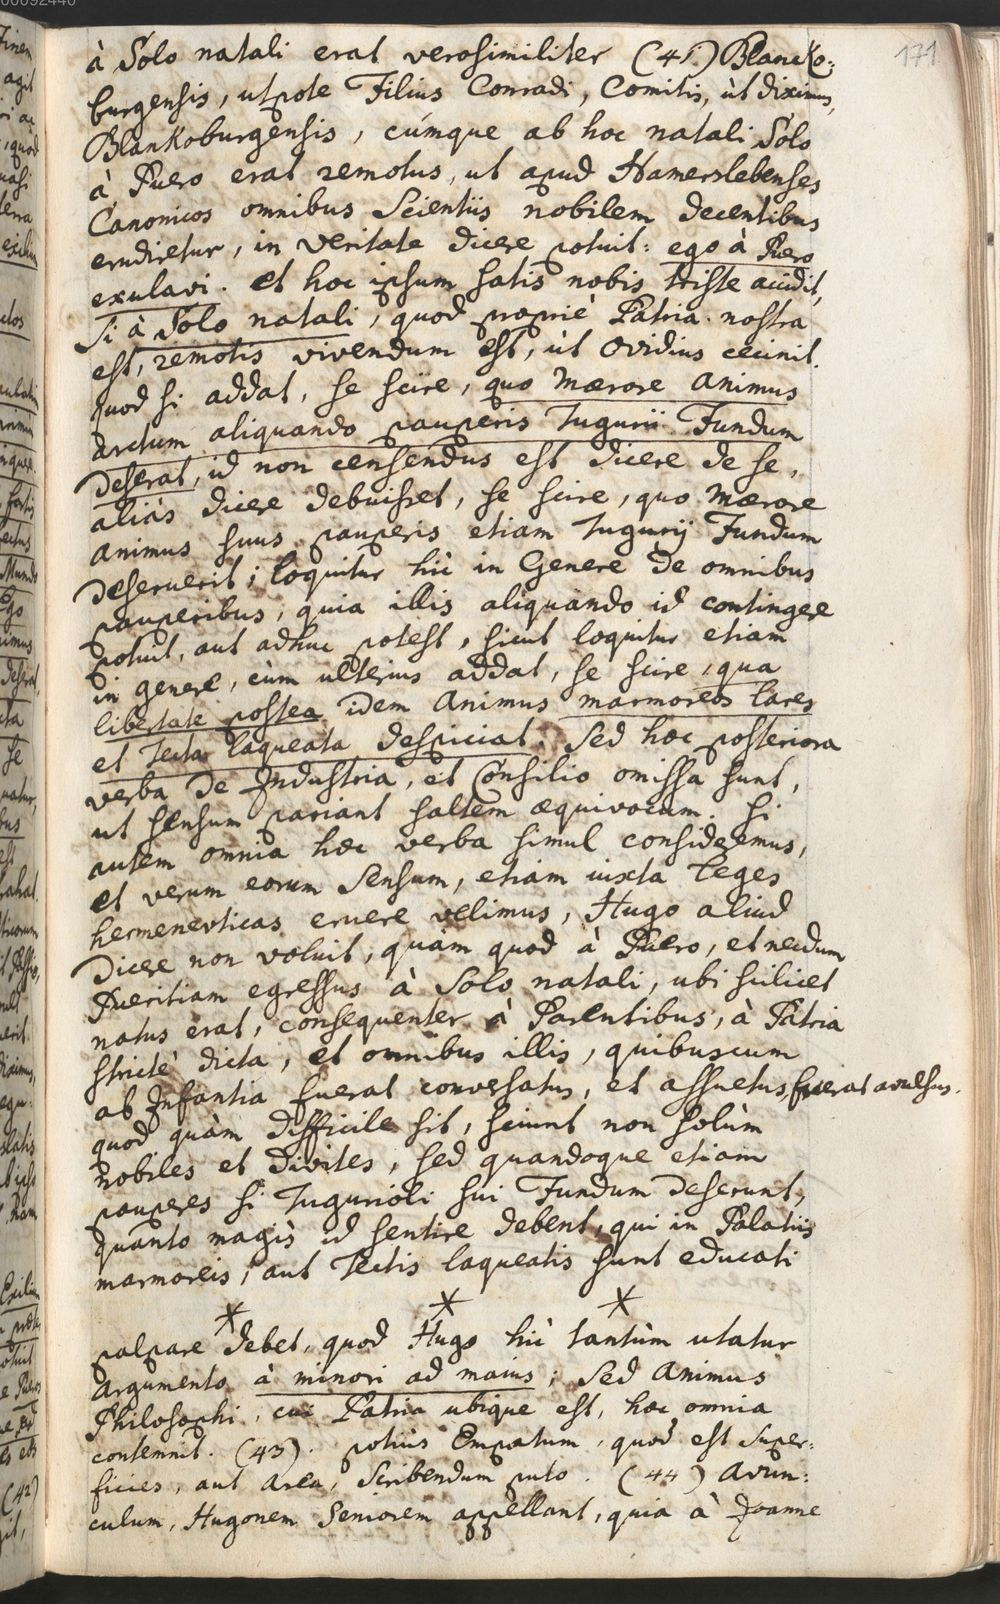 171
à Solo natali erat verosimiliter (41) Blancko:
burgensis, utpote Filius Conradi, Comitis, ùt diximus,
Blankoburgensis, cúmque ab hoc natali Solo
à Puero erat remotus, ut apud Hamerslebenses
Canonicos omnibus Scientiis nobilem decentibus
erudiretur, in veritate dicere potuit: ego à Puero
exulavi. et hoc ipsum satis nobis triste accidit,
si à Solo natali, quod propriè Patria nostra
est, remotis vivendum est, ùt Ovidius cecinit.
quod si addat, se scire, quo mærore animus
arctum aliquando pauperis Tugurii Fundum
deserat, id non censendus est dicere de se,
aliàs dicere debuisset, se scire, quo mærore
animus suus pauperis etiam Tugurij Fundum
deseruerit; loquitur hic in Genere de omnibus
pauperibus, quia illis aliquando id contingere
potuit, aut adhuc potest, sicut loquitur etiam
in genere, cùm ulterius addat, se scire, qua
libertate postea idem Animus marmoreos lares
et Tecta laqueata despiciat. Sed hæc posteriora
verba de Industria, et Consilio omissa sunt,
ut sensum pariant saltem æquivocum. si
autem omnia hæc verba simul consideremus,
et verum eorum sensum, etiam iuxta Leges
hermenevticas eruere velimus, Hugo aliud
dicere non voluit, quàm quod à Puero, et necdum
Pueritiam egressus à Solo natali, ubi scilicet
natus erat, consequenter à Parentibus, à Patria
strictè dicta, et omnibus illis, quibuscum
ab Infantia fuerat conversatus, et assuetus, fuerat avulsus.
quod quàm difficile sit, sciunt non solùm
nobiles et divites, sed quandoque etiam
pauperes si Tugurioli sui Fundum deserunt,
quanto magìs id sentire debent, qui in Palatiis
marmoreis, aut Tectis laqueatis sunt educati
* * *
palpare debet, quod Hugo hìc tantùm utatur
argumento à minori ad maius; Sed Animus
Philosophi, cui Patria ubique est, hæc omnia
contemnit. (43). potiùs Empatum, quod est super:
ficies, aut Area, scribendum puto. (44) avun:
culum, Hugonem Seniorem appellant, quia à Joanne